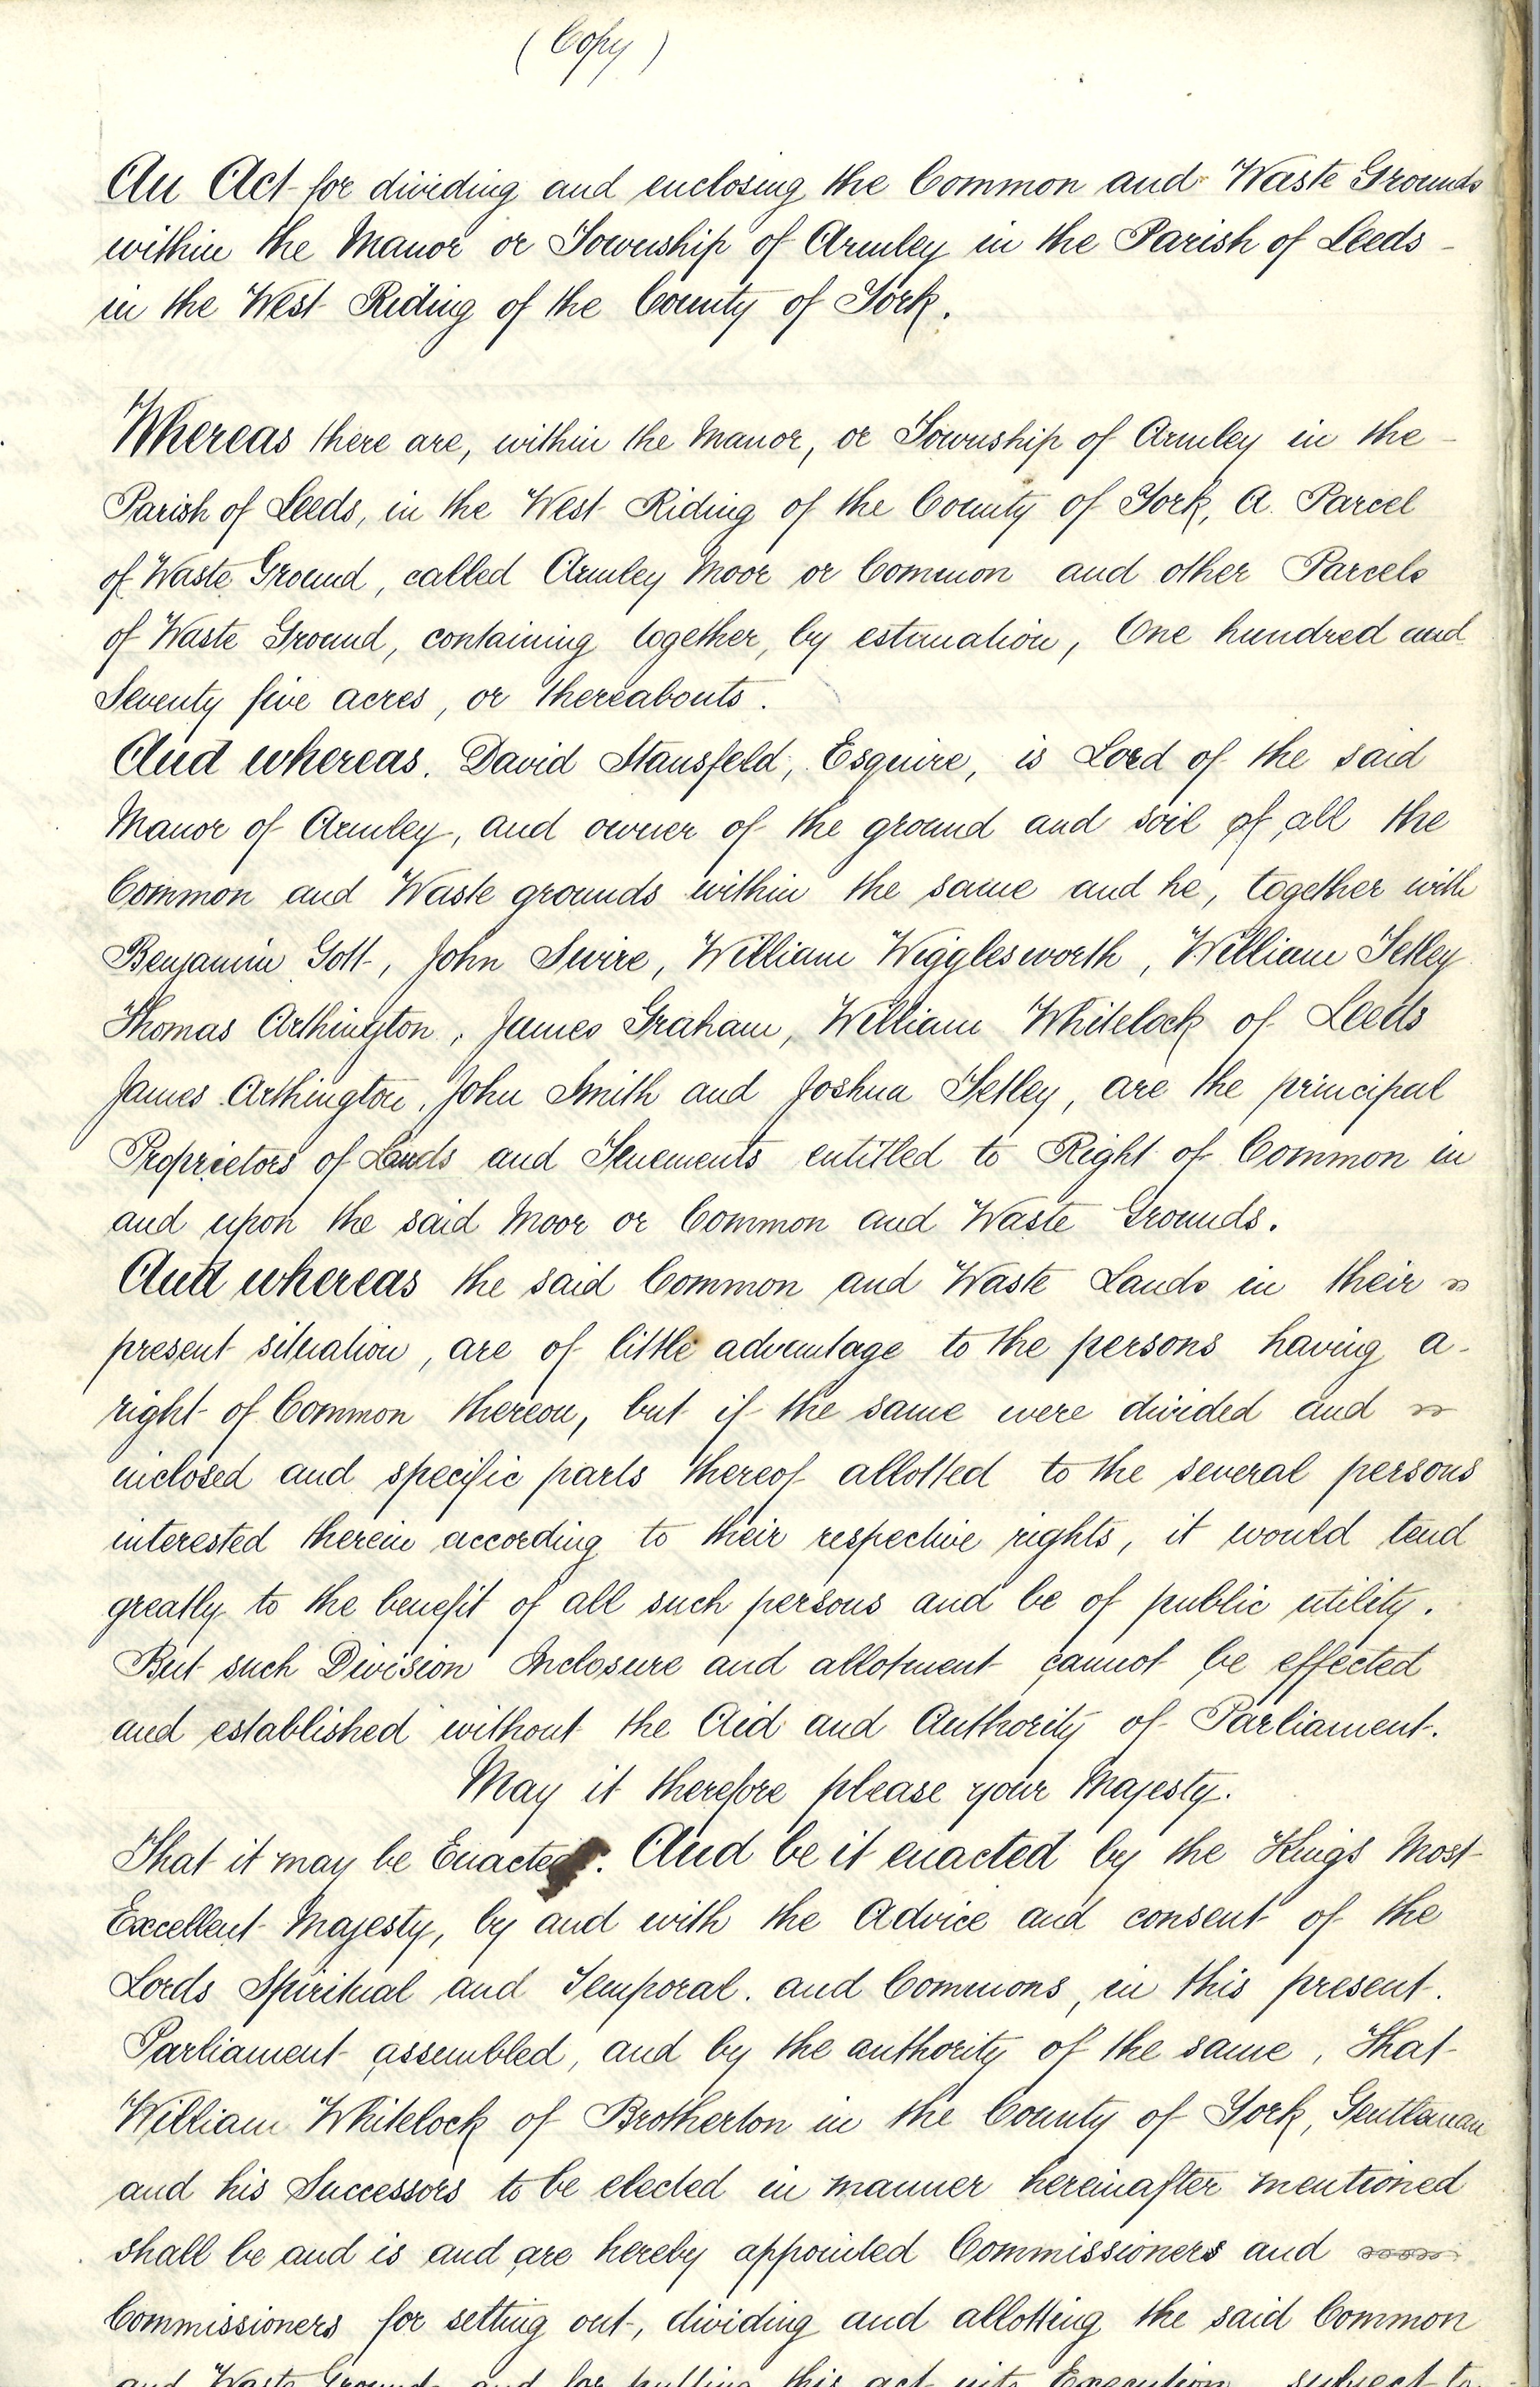 (Copy)
An Act for dividing and enclosing the Common and Waste Grounds
within the Manor or Township of Armley in the Parish of Leeds
in the West Riding of the County of York.
Whereas there are, within the Manor, or Township of Armley in the
Parish of Leeds, in the West Riding of the County of York, A Parcel
of Waste Ground, called Armley Moor or Common and other Parcels
of Waste Ground, containing together, by estimation, One hundred and
Seventy five acres, or thereabouts.
And whereas. David Stansfeld, Esquire, is Lord of the said
Manor of Armley, and owner of the ground and soil of all the
Common and Waste grounds within the same and he, together with
Benjamin Gott, John Swire, William Wigglesworth, William Tetley
Thomas Arthington, James Graham, William Whitelock of Leeds
James Arthington, John Smith and Joshua Tetley, are the principal
Proprietors of Lands and Tenements entitled to Right of Common in
and upon the said Moor or Common and Waste Grounds.
And whereas the said Common and Waste Lands in their
present situation, are of little advantage to the persons having a
right of Common thereon, but if the same were divided and
inclosed and specific parts thereof allotted to the several persons
interested therein according to their respective rights, it would tend
greatly to the benefit of all such persons and be of public utility.
But such Division Inclosure and allotment cannot be effected
and established without the Aid and Authority of Parliament.
May it therefore please your Majesty.
That it may be Enacted. And be it enacted by the Kings Most
Excellent Majesty, by and with the Advice and consent of the
Lords Spiritual and Temporal. and Commons, in this present.
Parliament assembled, and by the authority of the same, That
William Whitelock of Brotherton in the County of York, Gentleman
and his Successors to be elected in manner hereinafter mentioned
shall be and is and are hereby appointed Commissioners and
Commissioners for setting out, dividing and allotting the said Common
and Waste Grounds and for putting this act into Execution subject to